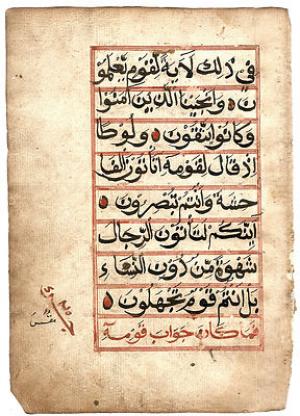 فِي ذَٰلِكَ لَآيَةً لِقَوْمٍ يَعْلَمُو
نَ وَأَنْجَيْنَا الَّذِينَ آمَنُوا
وَكَانُوا يَتَّقُونَ وَلُوطًا
إِذْ قَالَ لِقَوْمِهِ أَتَأْتُونَ الْفَا
حِشَةَ وَأَنْتُمْ تُبْصِرُونَ
أَئِنَّكُمْ لَتَأْتُونَ الرِّجَالَ
شَهْوَةً مِنْ دُونِ النِّسَاءِ
بَلْ أَنْتُمْ قَوْمٌ تَجْهَلُونَ
فَمَا كَانَ جَوَابَ قَوْمِهِ